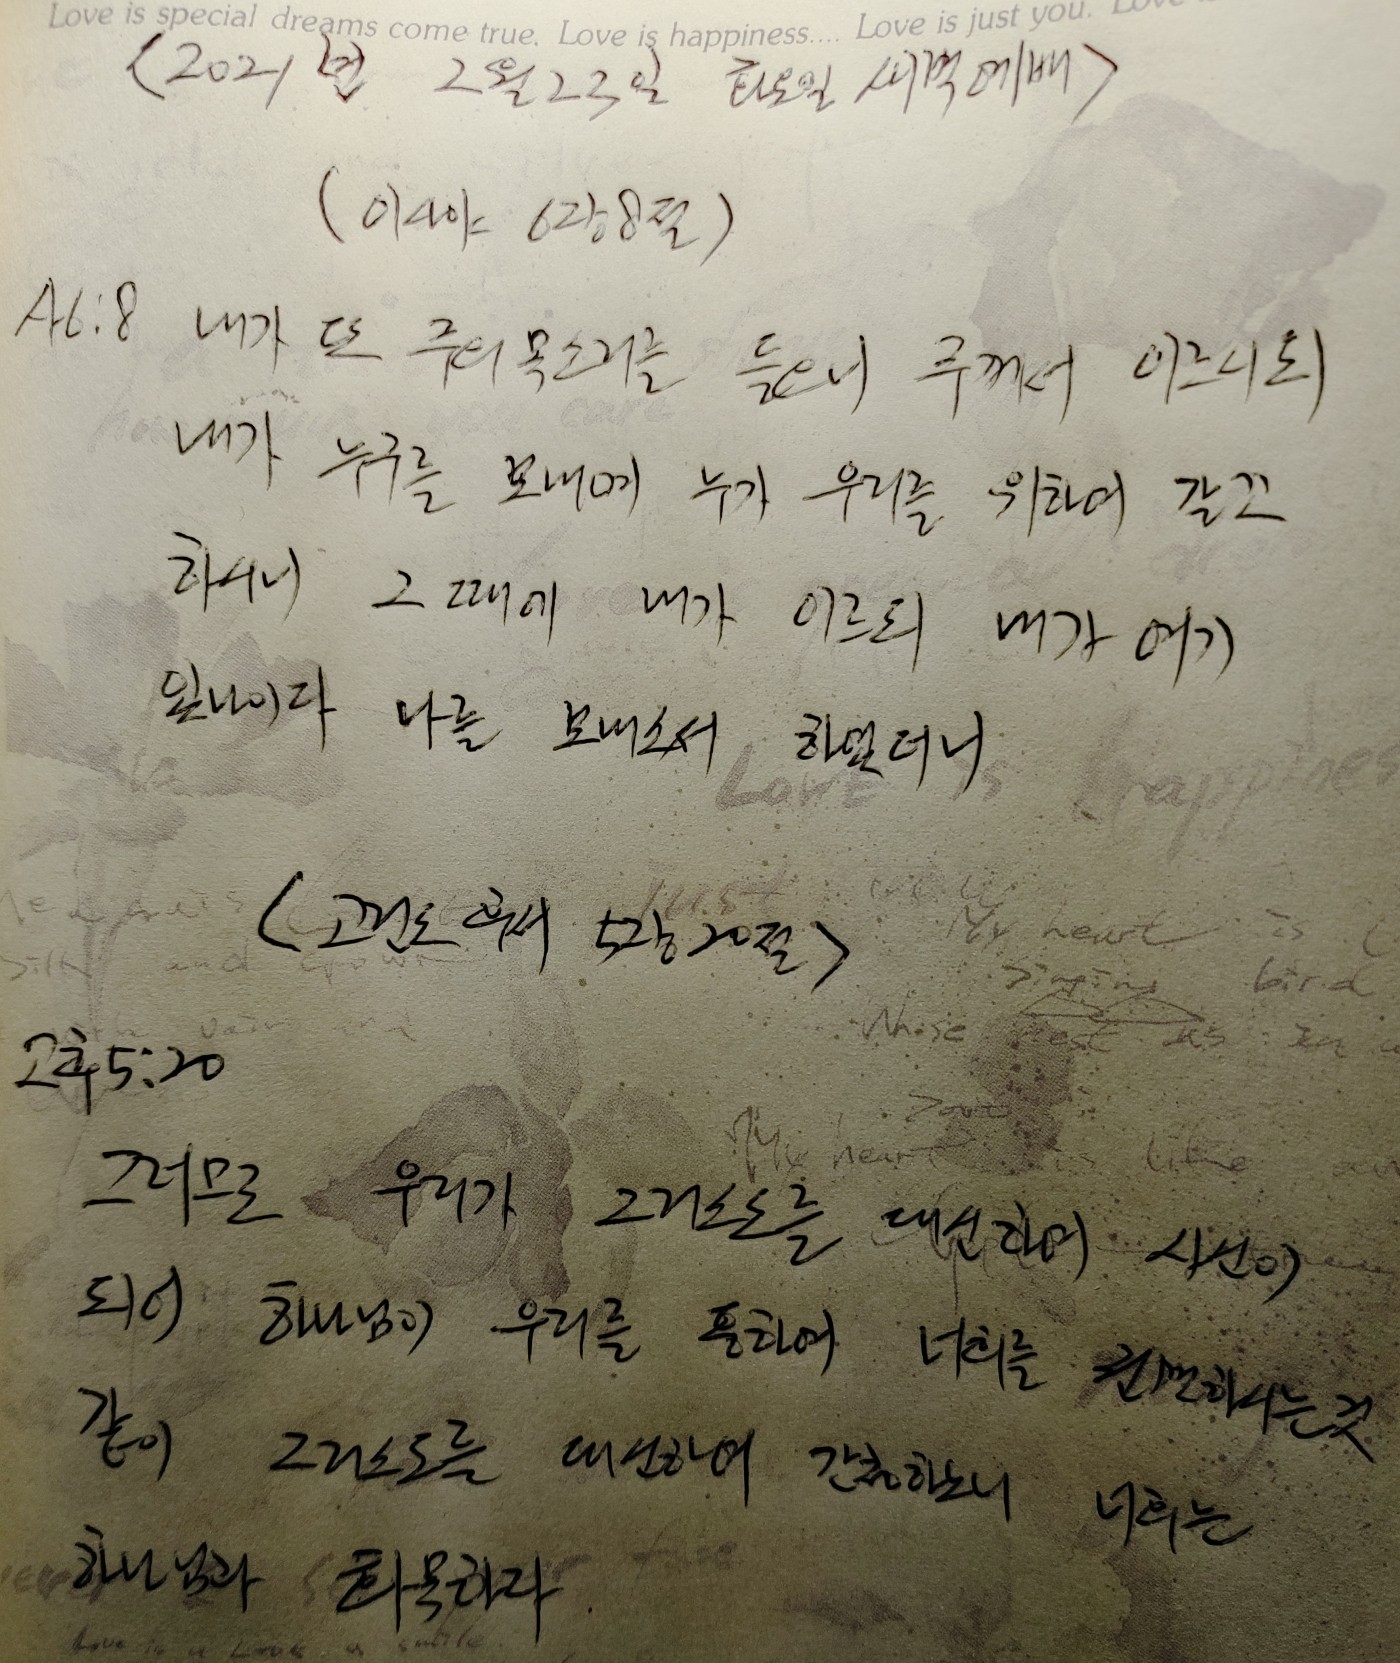 Love is special dreams come true. Love is happiness.... Love is just you.
<2021년 2월 23일 화요일 새벽예배>
(이사야 6장8절)
사6:8 내가 또 주의 목소리를 들으니 주께서 이르시되
내가 누구를 보내며 누가 우리를 위하여 갈꼬
하시니 그 때에 내가 이르되 내가 여기
있나이다 나를 보내소서 하였더니
Love is happines
just you
My heart is
<고린도후서 5장20절>
silk and
singing bird
고후5:20
Whose nest is in
My heart is like an
그러므로 우리가 그리스도를 대신하여 사신이
되어 하나님이 우리를 통하여 너희를 권면하시는것
같이 그리스도를 대신하여 간청하노니 너희는
하나님과 화목하라.
Love is a smile